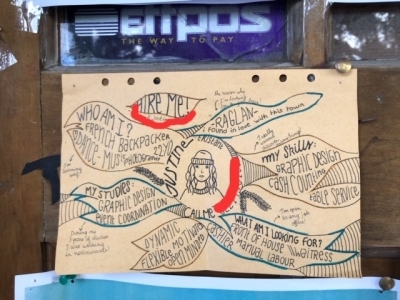 eftpos
THE WAY TO PAY
HIRE ME!
WHO AM I?
FRENCH BACKPACKER
22yo
DANCE - MUSIC - PHOTOGRAPHY
-RAGLAN-
I found in love with this town
JUSTINE
MY SKILLS:
GRAPHIC DESIGN
CASH COUNTING
TABLE SERVICE
MY STUDIES:
GRAPHIC DESIGN
EVENT COORDINATION
CALL ME
WHAT AM I LOOKING FOR?
FRONT OF HOUSE
WAITRESS
CASHIER
MANUAL LABOUR
DYNAMIC
MOTIVATED
FLEXIBLE
OPEN MINDED